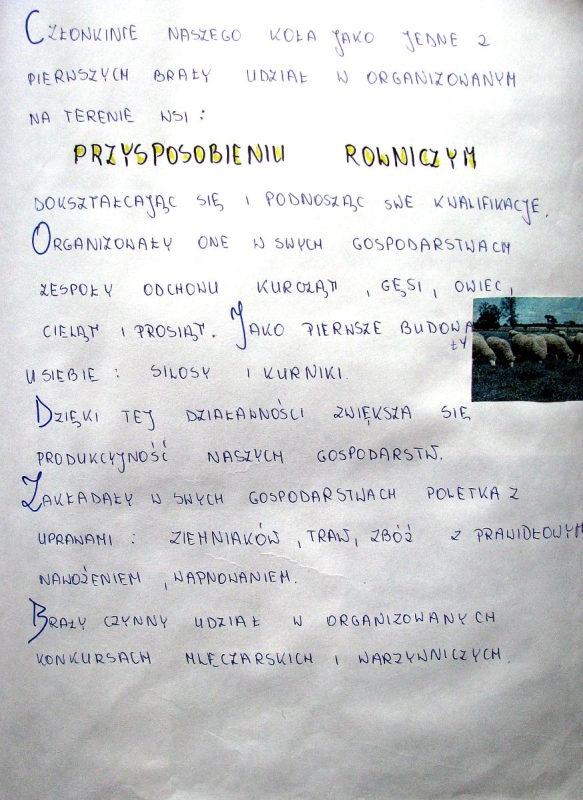 CZŁONKINIE NASZEGO KOŁA JAKO JEDNE Z
PIERWSZYCH BRAŁY UDZIAŁ W ORGANIZOWANYM
NA TERENIE WSI :
PRZYSPOSOBIENIU ROWNICZYM
DOKSZTAŁCAJĄC SIĘ I PODNOSZĄC SWE KWALIFIKACJE.
ORGANIZOWAŁY ONE W SWYCH GOSPODARSTWACH
ZESPOŁY ODCHOWU KURCZĄT , GĘSI , OWIEC ,
CIELĄT I PROSIĄT. JAKO PIERWSZE BUDOWA
ŁY
U SIEBIE : SILOSY I KURNIKI.
DZIĘKI TEJ DZIAŁAWNOŚCI ZWIĘKSZA SIĘ
PRODUKCYJNOŚĆ NASZYCH GOSPODARSTW.
ZAKŁADAŁY W SWYCH GOSPODARSTWACH POLETKA Z
UPRAWAMI : ZIEMNIAKÓW , TRAW, ZBÓŻ Z PRAWIDŁOWYM
NAWOŻENIEM , WAPNOWANIEM.
BRAŁY CZYNNY UDZIAŁ W ORGANIZOWANYCH
KONKURSACH MLECZARSKICH I WARZYWNICZYCH.